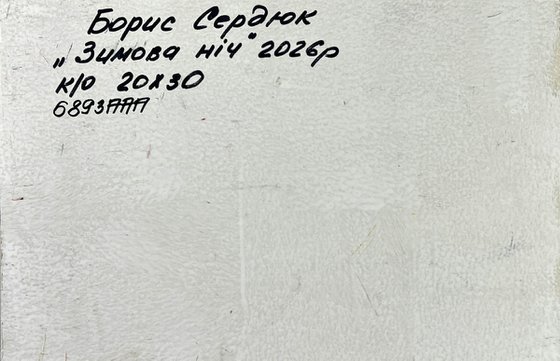 Борис Сердюк
„Зимова ніч" 2026р
к/о 20х30
6893ААА